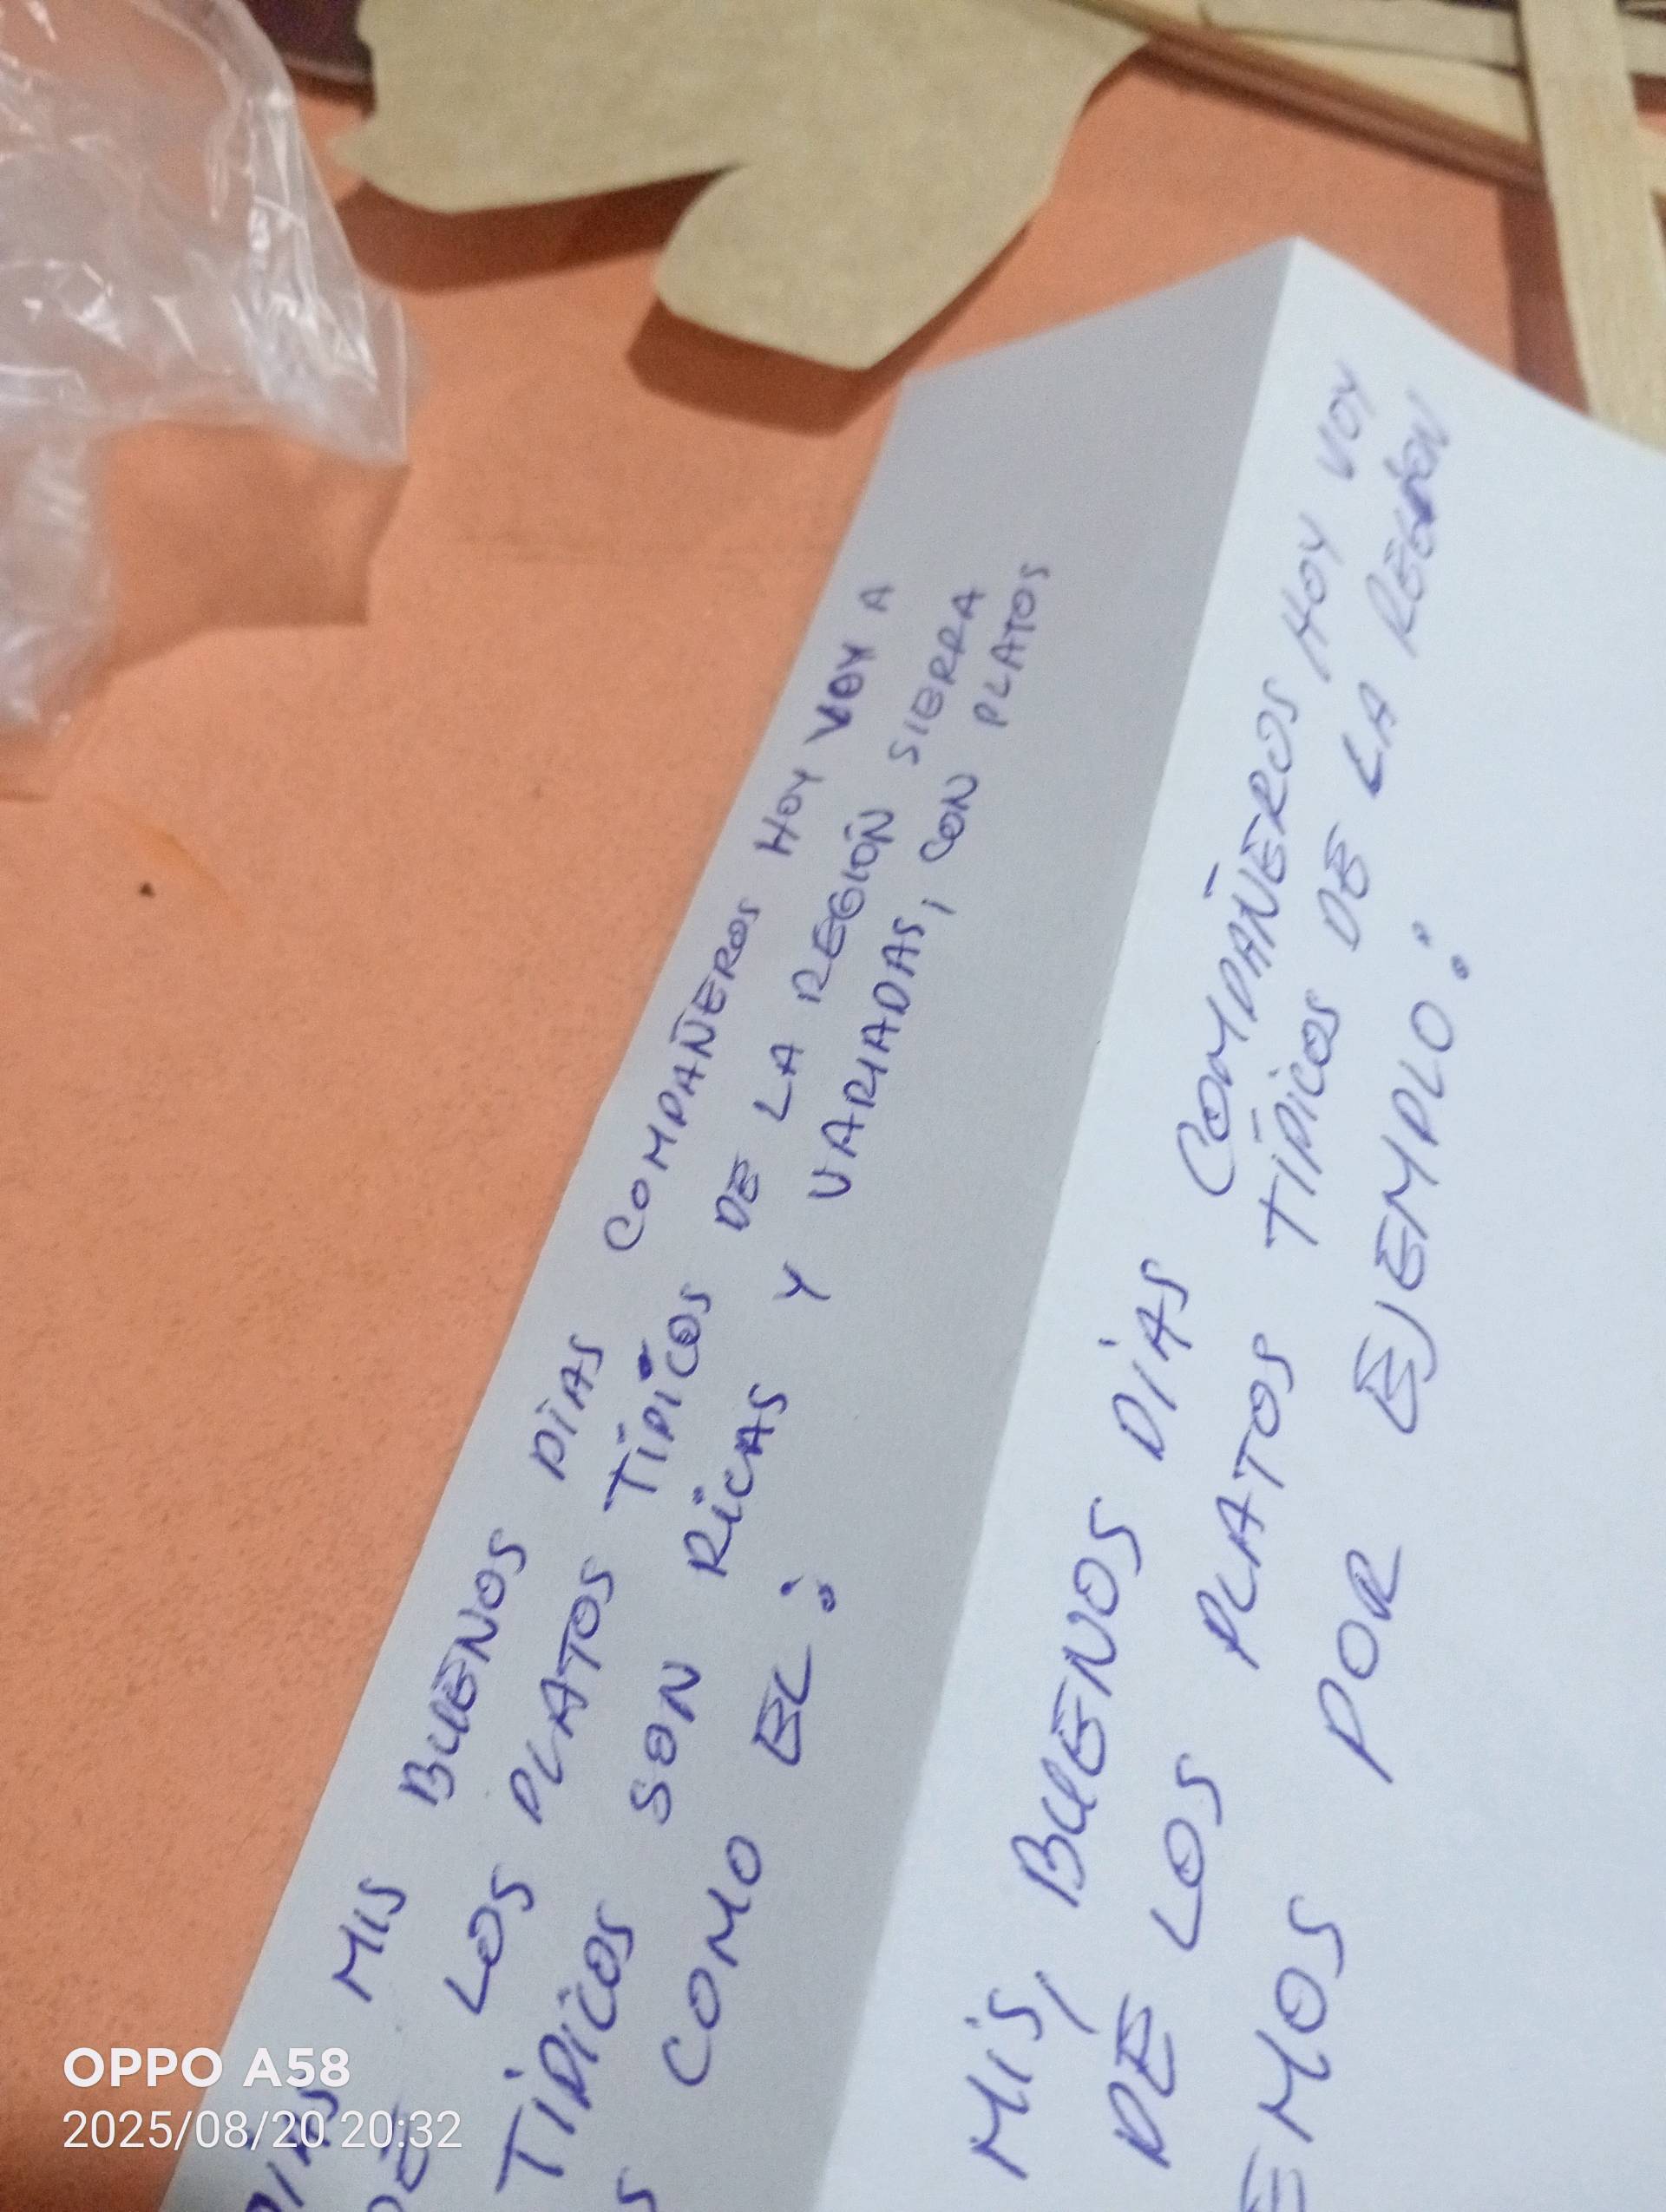 DÍAS MIS BUENOS DÍAS COMPAÑEROS HOY VOY A
DE LOS PLATOS TÍPICOS DE LA REGIÓN SIERRA
TÍPICOS SON RICAS Y VARIADAS, CON PLATOS
COMO EL:
MIS, BUENOS DÍAS COMPAÑEROS HOY VOY
DE LOS PLATOS TÍPICOS DE LA REGIÓN
EMOS POR EJEMPLO:
OPPO A58
2025/08/20 20:32